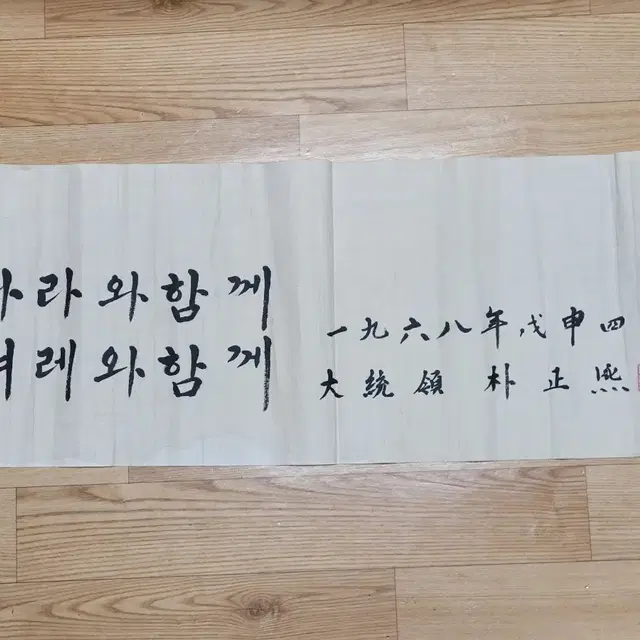 라와함께
레와함께
一九六八年戊申四
大統領 朴正熙